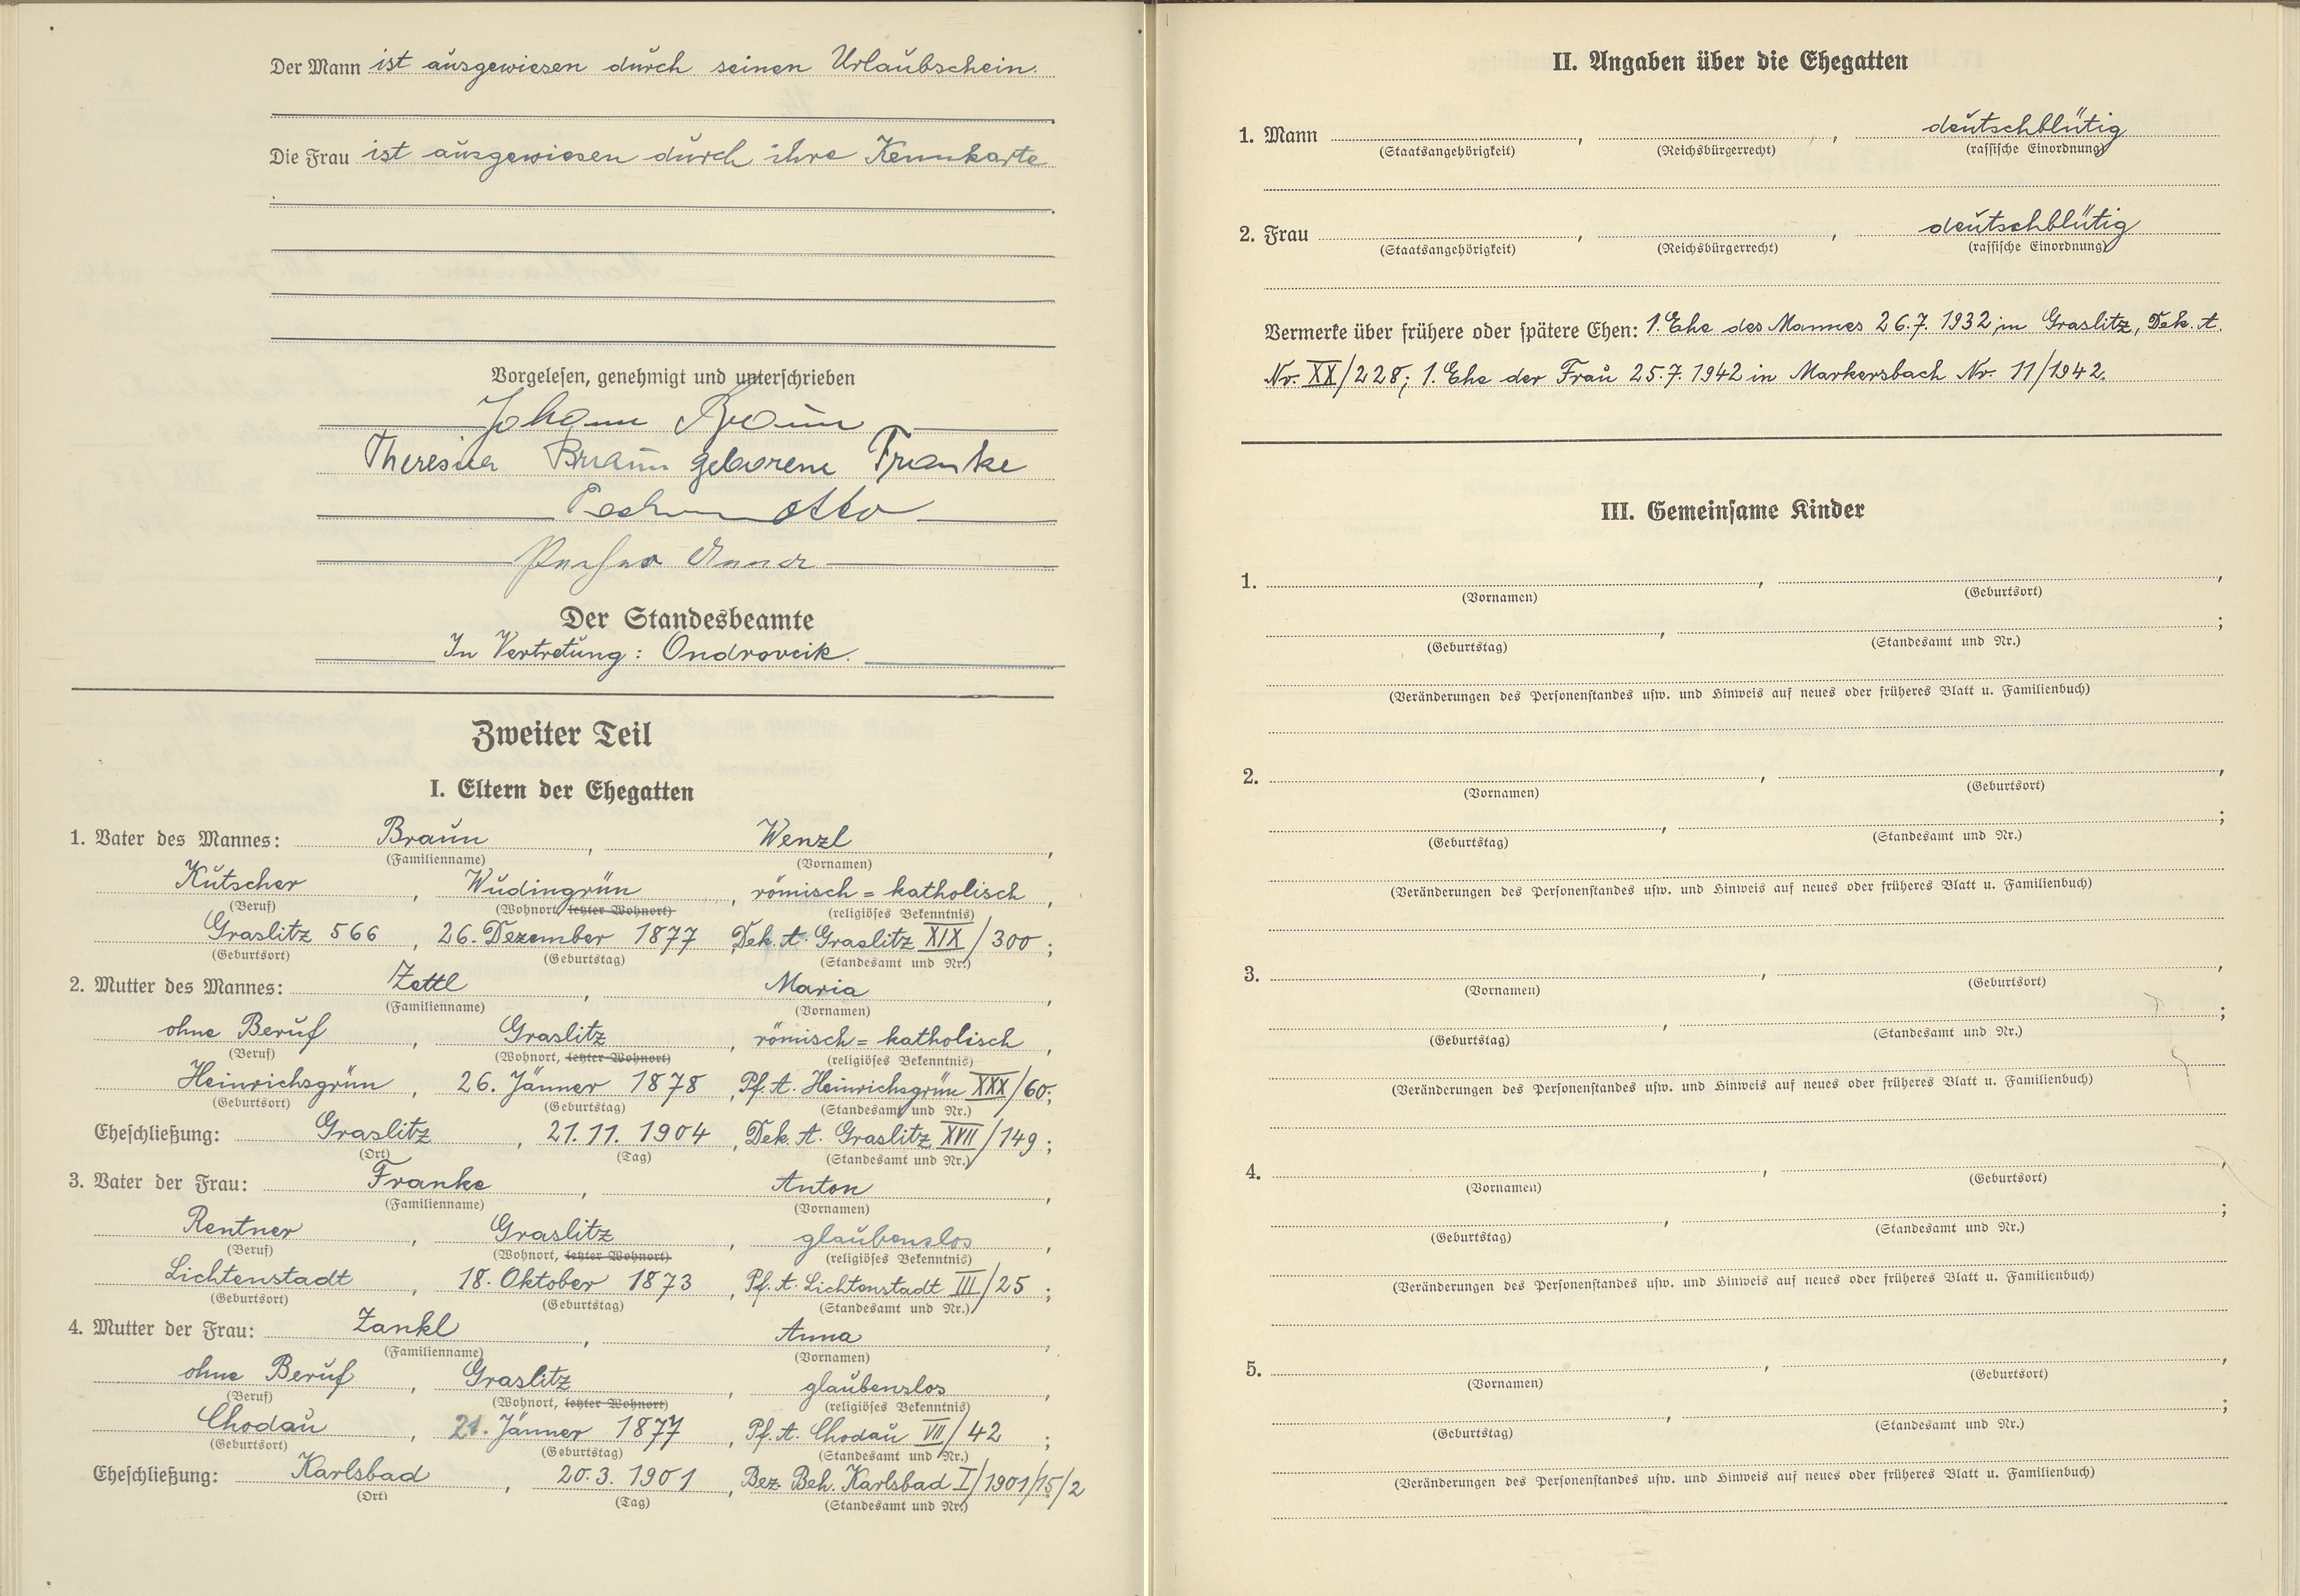 Der Mann ist ausgewiesen durch seinen Urlaubschein.
Die Frau ist ausgewiesen durch ihre Kennkarte
Vorgelesen, genehmigt und unterschrieben
Johann Braun
Theresia Braun geborene Franke
Otto
Anna
Der Standesbeamte
In Vertretung: Ondrovcik.
Zweiter Teil
I. Eltern der Ehegatten
1. Vater des Mannes: Braun, Wenzl,
(Familienname) (Vornamen)
Kutscher, Wudingrün, römisch=katholisch,
(Beruf) (Wohnort, letzter Wohnort) (religiöses Bekenntnis)
Graslitz 566, 26. Dezember 1877, Dek. A. Graslitz XIX/300;
(Geburtsort) (Geburtstag) (Standesamt und Nr.)
2. Mutter des Mannes: Zettl, Maria,
(Familienname) (Vornamen)
ohne Beruf, Graslitz, römisch=katholisch,
(Beruf) (Wohnort, letzter Wohnort) (religiöses Bekenntnis)
Heinrichsgrün, 26. Jänner 1878, Pf. A. Heinrichsgrün XXX/60;
(Geburtsort) (Geburtstag) (Standesamt und Nr.)
Eheschließung: Graslitz, 21.11. 1904, Dek. A. Graslitz XVII/149;
(Ort) (Tag) (Standesamt und Nr.)
3. Vater der Frau: Franke, Anton,
(Familienname) (Vornamen)
Rentner, Graslitz, glaubenslos,
(Beruf) (Wohnort, letzter Wohnort) (religiöses Bekenntnis)
Lichtenstadt, 18. Oktober 1873, Pf. A. Lichtenstadt III/25;
(Geburtsort) (Geburtstag) (Standesamt und Nr.)
4. Mutter der Frau: Zankl, Anna,
(Familienname) (Vornamen)
ohne Beruf, Graslitz, glaubenslos,
(Beruf) (Wohnort, letzter Wohnort) (religiöses Bekenntnis)
Chodau, 21. Jänner 1877, Pf. A. Chodau VII/42;
(Geburtsort) (Geburtstag) (Standesamt und Nr.)
Eheschließung: Karlsbad, 20.3. 1901, Bez. Beh. Karlsbad I/1901/15/2
(Ort) (Tag) (Standesamt und Nr.)
II. Angaben über die Ehegatten
1. Mann , , deutschblütig
(Staatsangehörigkeit) (Reichsbürgerrecht) (rassische Einordnung)
2. Frau , , deutschblütig
(Staatsangehörigkeit) (Reichsbürgerrecht) (rassische Einordnung)
Vermerke über frühere oder spätere Ehen: 1. Ehe des Mannes 26.7. 1932 in Graslitz, Dek. A.
Nr. XX/228; 1. Ehe der Frau 25.7. 1942 in Markersbach Nr. 11/1942.
III. Gemeinsame Kinder
1. , ,
(Vornamen) (Geburtsort)
, ;
(Geburtstag) (Standesamt und Nr.)
(Veränderungen des Personenstandes usw. und Hinweis auf neues oder früheres Blatt u. Familienbuch)
2. , ,
(Vornamen) (Geburtsort)
, ;
(Geburtstag) (Standesamt und Nr.)
(Veränderungen des Personenstandes usw. und Hinweis auf neues oder früheres Blatt u. Familienbuch)
3. , ,
(Vornamen) (Geburtsort)
, ;
(Geburtstag) (Standesamt und Nr.)
(Veränderungen des Personenstandes usw. und Hinweis auf neues oder früheres Blatt u. Familienbuch)
4. , ,
(Vornamen) (Geburtsort)
, ;
(Geburtstag) (Standesamt und Nr.)
(Veränderungen des Personenstandes usw. und Hinweis auf neues oder früheres Blatt u. Familienbuch)
5. , ,
(Vornamen) (Geburtsort)
, ;
(Geburtstag) (Standesamt und Nr.)
(Veränderungen des Personenstandes usw. und Hinweis auf neues oder früheres Blatt u. Familienbuch)